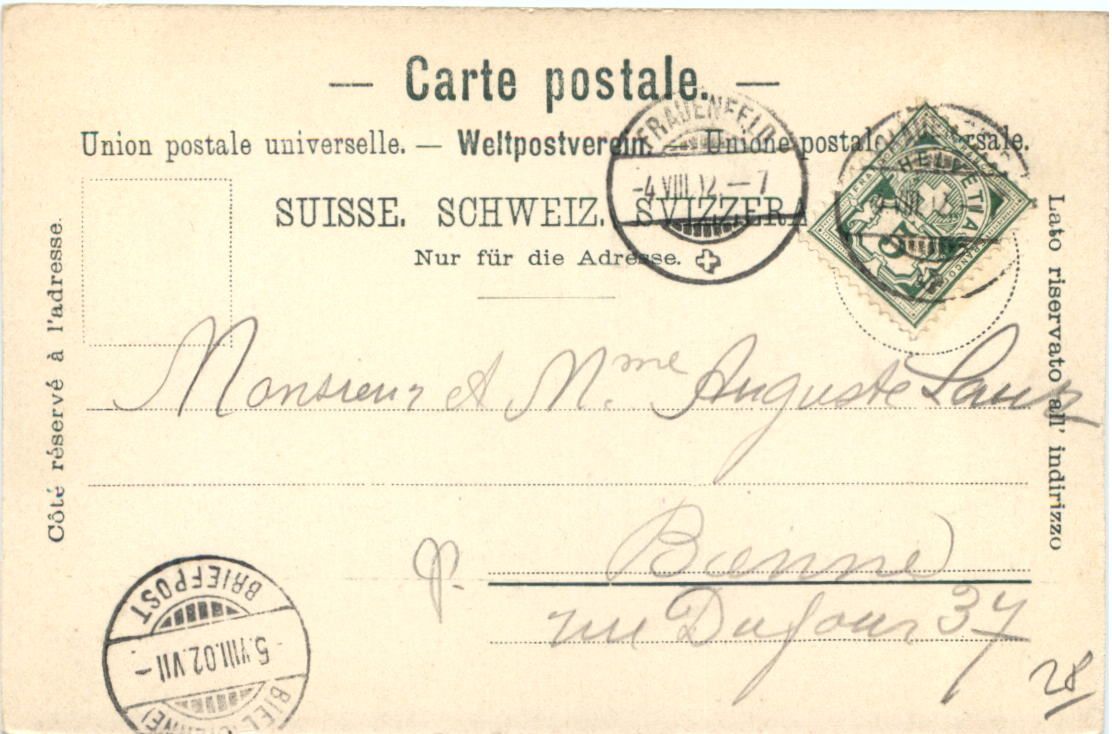 — Carte postale. —
Union postale universelle. — Weltpostverein. — Unione postale universale.
SUISSE. SCHWEIZ. SVIZZERA
Nur für die Adresse.
Côté réservé à l'adresse.
Lato riservato all' indirizzo
FRAUENFELD
-4.VIII.02.-7
HELVETIA
FRANCO
5
Monsieur et Mme Auguste
Bienne
rue Dufour 37
28/
BRIEFPOST
5.VIII.02.VII-
BIEL (BIENNE)